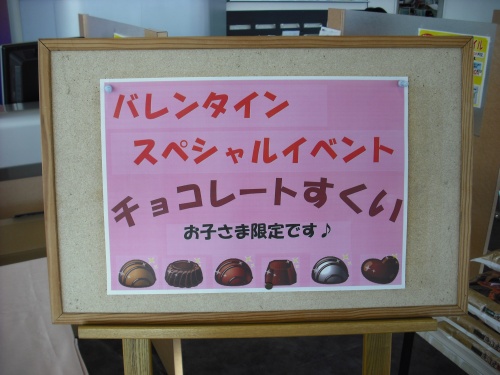 バレンタイン
スペシャルイベント
チョコレートすくい
お子さま限定です♪